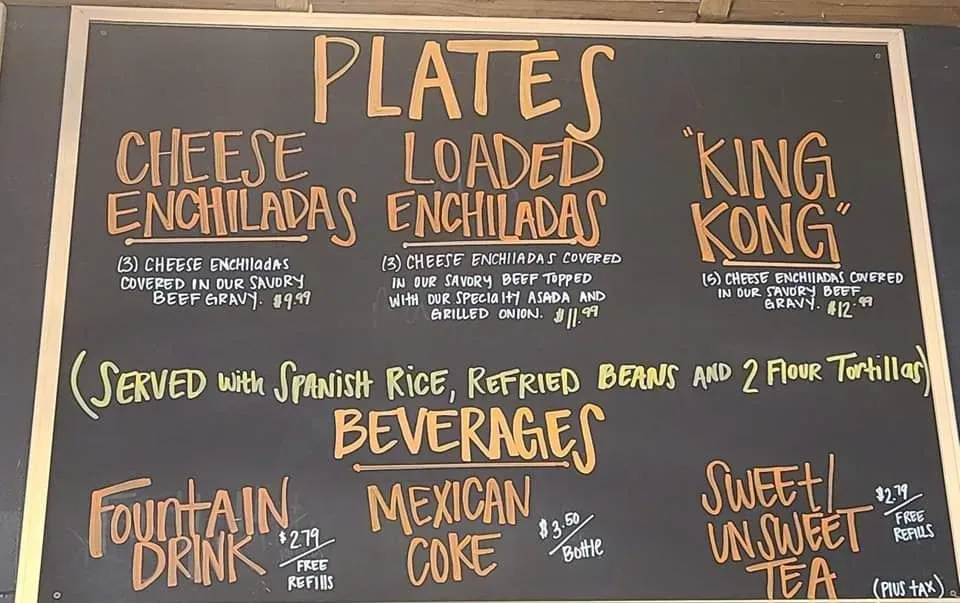 PLATES
CHEESE
ENCHILADAS
(3) CHEESE ENCHILADAS
COVERED IN OUR SAVORY
BEEF GRAVY. $9.99
LOADED
ENCHILADAS
(3) CHEESE ENCHILADAS COVERED
IN OUR SAVORY BEEF TOPPED
WITH OUR SPECIALTY ASADA AND
GRILLED ONION. $11.99
"KING
KONG"
(5) CHEESE ENCHILADAS COVERED
IN OUR SAVORY BEEF
GRAVY. $12.99
(SERVED with SPANISH RICE, REFRIED BEANS AND 2 Flour Tortillas)
BEVERAGES
Fountain
DRINK
$2.79
FREE
REFILLS
MEXICAN
COKE
$3.50/
Bottle
SWEET/
UNSWEET
TEA
$2.79
FREE
REFILLS
(Plus tax)